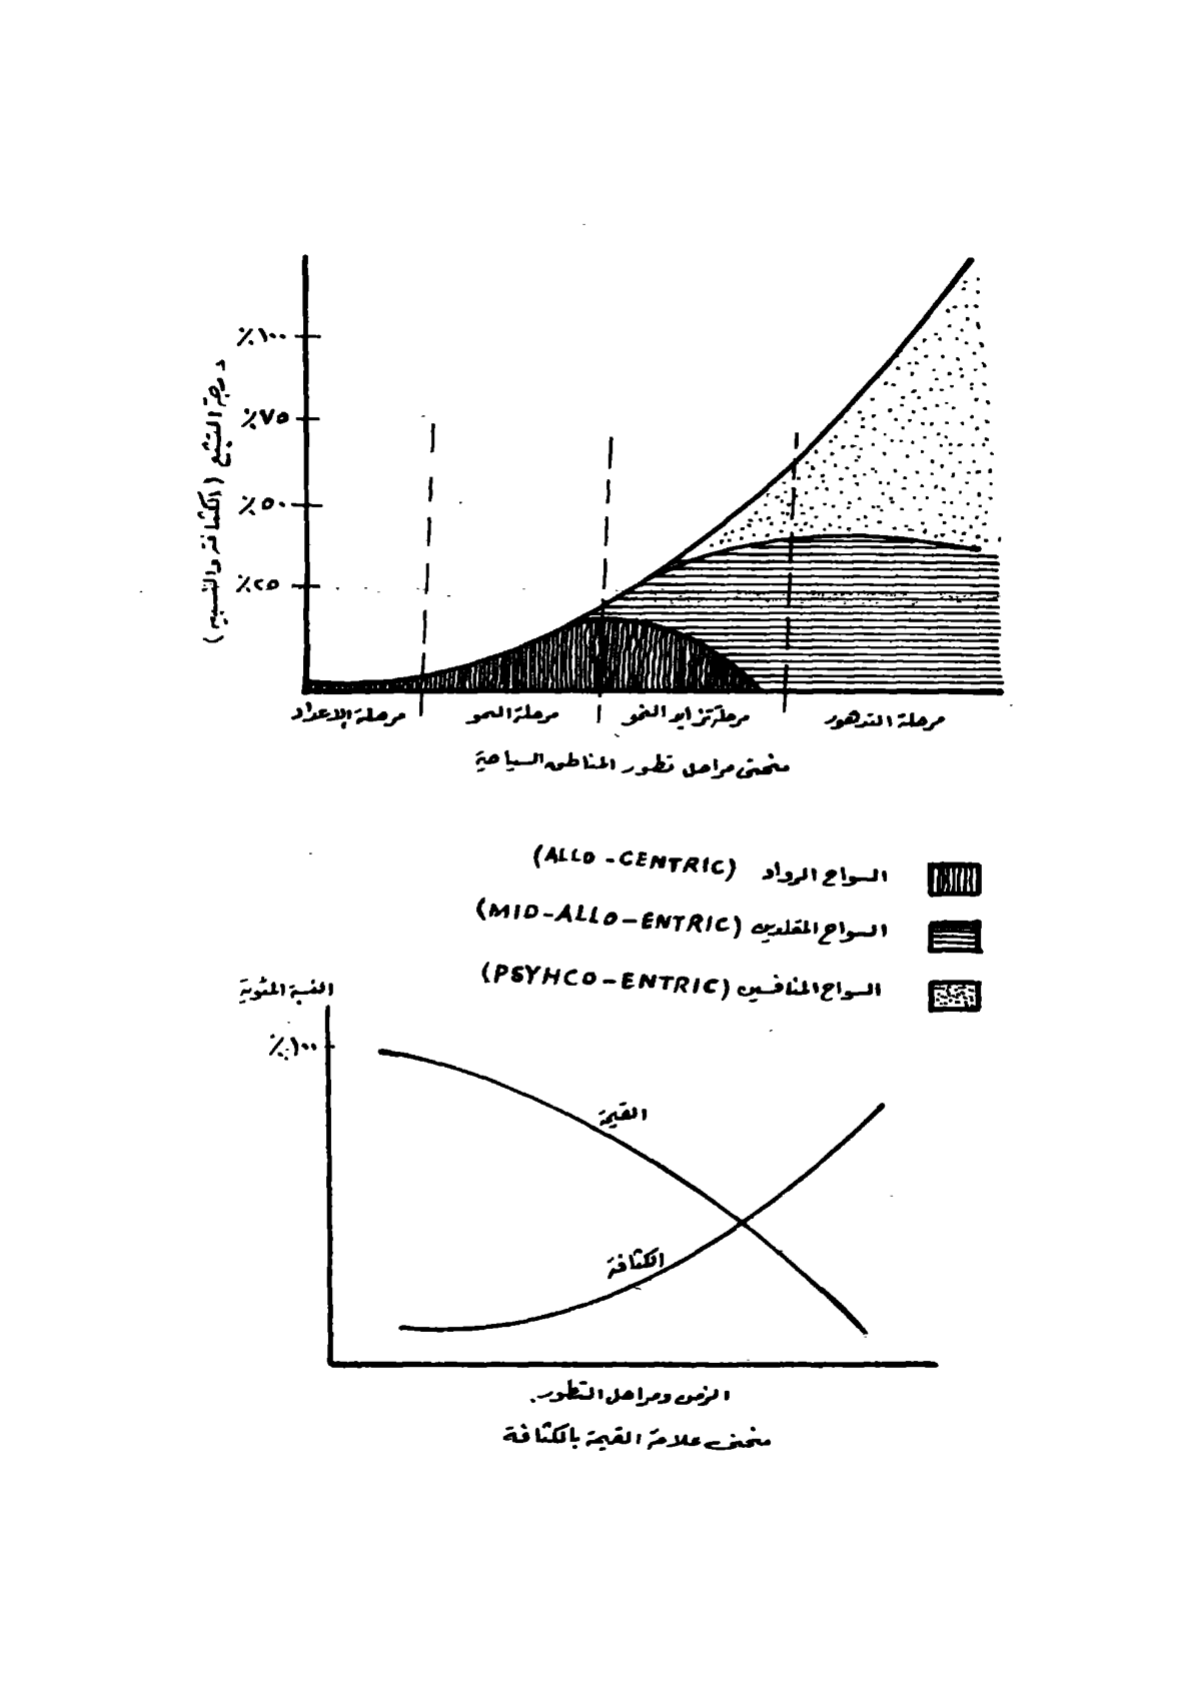 ٪١٠٠
٪٧٥
٪٥٠
٪٢٥
درجة التشبع (الكثافة والنسبية)
مرحلة الاعداد
مرحلة النمو
مرحلة تزايد النمو
مرحلة التدهور
منحنى مراحل تطور المناطق السياحية
السواح الرواد (ALLO-CENTRIC)
السواح المقلدين (MID-ALLO-ENTRIC)
السواح المنافسين (PSYHCO-ENTRIC)
النسبة المئوية
٪١٠٠
القيمة
الكثافة
الزمن ومراحل التطور.
منحنى علامة القيمة بالكثافة